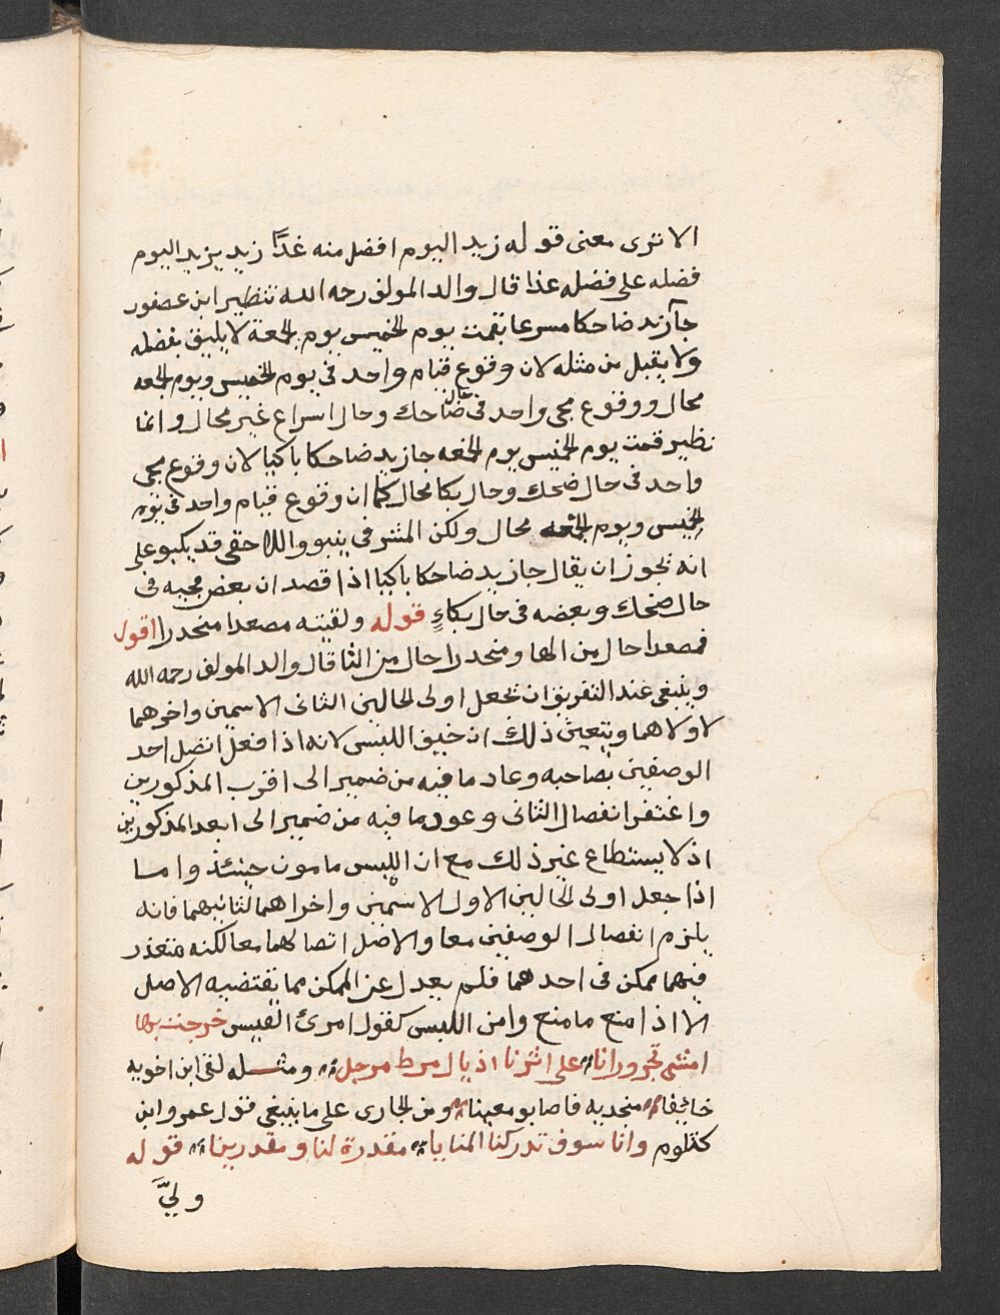 الا ترى معنى قوله زيد اليوم افضل منه غدًا زيد يزيد اليوم
فضله على فضله غدا قال والد المولف رحمه الله تنظير ابن عصفور
جآ زيد ضاحكا مسرعا بقمت يوم الخميس يوم الجمعة لا يليق بفضله
ولا يقبل من مثله لان وقوع قيام واحد في يوم الخميس ويوم الجمعه
محال ووقوع مجى واحد فى حال ضاحك وحال اسراع غير محال وانما
نظير قمت يوم الخميس يوم الجمعه جا زيد ضاحكا باكيا لان وقوع مجى
واحد فى حال ضحك وحال بكا محال كما ان وقوع قيام واحد فى يوم
الخميس ويوم الجمعه محال ولكن المشرفى ينبو واللاحقى قد يكبو على
انه يجوز ان يقال جا زيد ضاحكا باكيا اذا قصد ان بعض مجيه فى
حال ضحك وبعضه فى حال بكاءٍ قوله ولقيته مصعدا منحدرا اقول
فمصعدا حال من الها ومنحدرا حال من التا قال والد المولف رحمه الله
وينبغى عند التفريق ان تجعل اولى الحالين الثانى الاسمين واخرهما
لاولاهما ويتعين ذلك ان خيف اللبس لانه اذا فعل اتصل احد
الوصفين بصاحبه وعاد ما فيه من ضمير الى اقرب المذكورين
واغتفر انفصال الثانى وعود ما فيه من ضمير الى ابعد المذكورين
اذ لا يستطاع غير ذلك مع ان اللبس مامون حينئذ واما
اذا جعل اولى الحالين الاول الاسمين واخراهما لثانيهما فانه
يلزم انفصال الوصفين معا والاصل اتصالهما معا لكنه متعذر
فيهما ممكن فى احدهما فلم يعدل عن الممكن مما تقتضيه الاصل
الا اذا منع ما منع وامن اللبس كقول امرئ القيس خرجت بها
امشى تجر ورانا على اثرنا اذيال مرط مرجل ومثله لقى ابن اخويه
خايفا منجديه فاصابو مغينا ومن الجارى على ما ينبغى قول عمرو ابن
كلثوم وانا سوف تدركنا المنايا مقدرة لنا ومقدرينا قوله
ولِيَّ